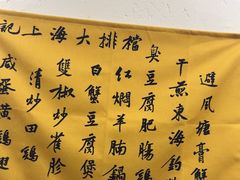 記上海大排檔
避風塘膏蟹
干煎東海釣
臭豆腐肥腸
红燜羊腩鍋
白蟹豆腐煲
雙椒炒雀胗
清炒田鷄
咸蛋黄鷄翅